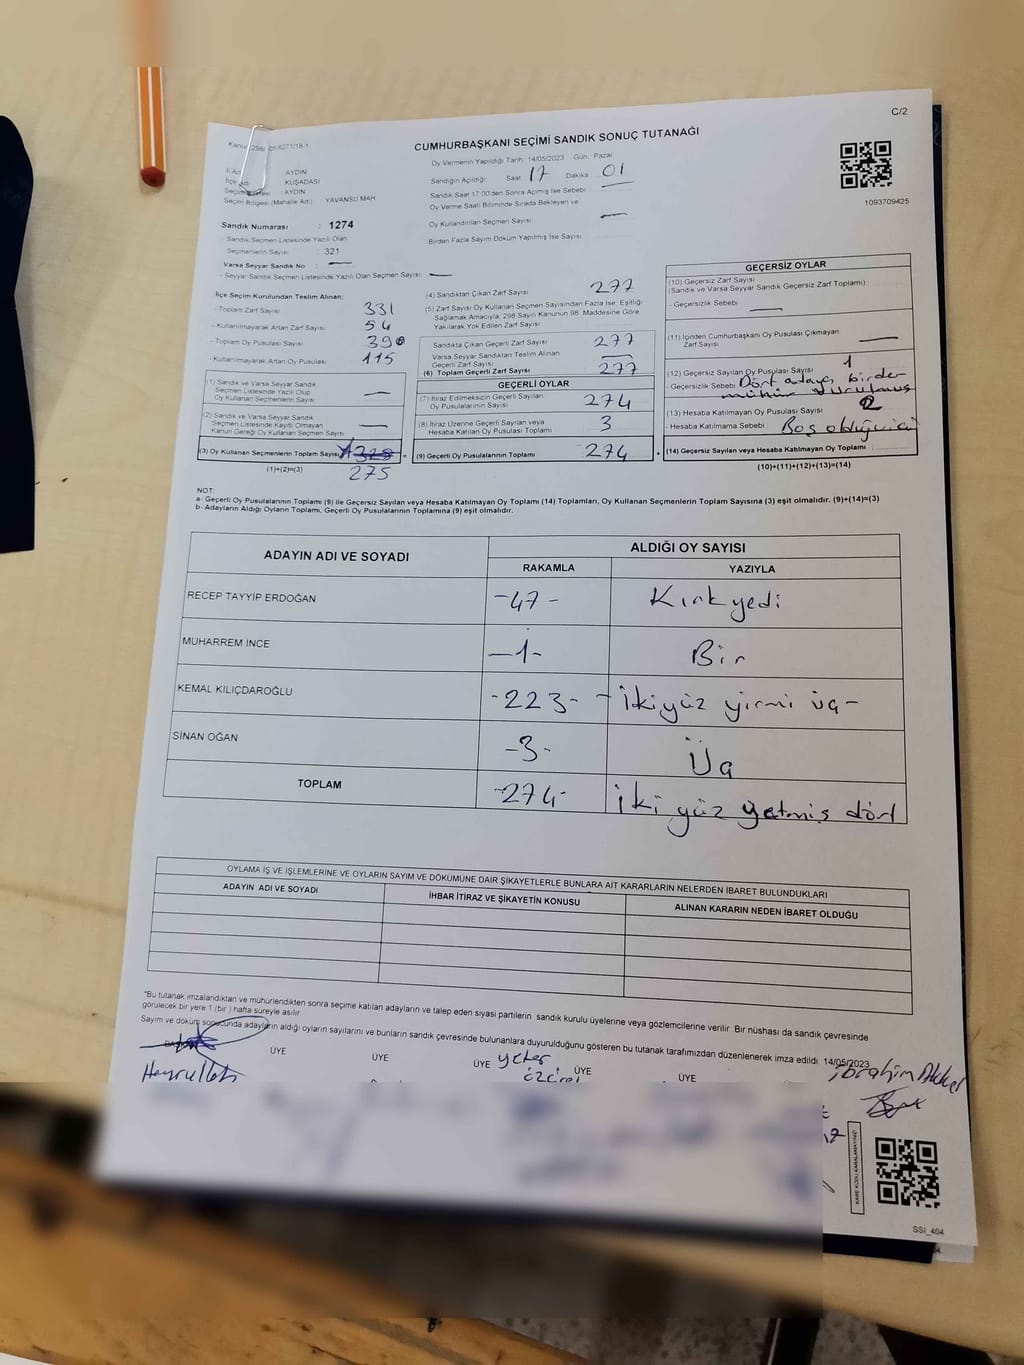 C/2
CUMHURBAŞKANI SEÇİMİ SANDIK SONUÇ TUTANAĞI
1093709425
AYDIN
KUŞADASI
AYDIN
Seçim Bölgesi (Mahalle Adı) : YAVANSU MAH
Sandık Numarası : 1274
Sandık Seçmen Listesinde Yazılı Olan
Seçmenlerin Sayısı : 321
Varsa Seyyar Sandık No : —
Seyyar Sandık Listesinde Yazılı Olan Seçmen Sayısı : —
Oy Vermenin Yapıldığı Tarih: 14/05/2023 Gün : Pazar
Sandığın Açıldığı Saat 17 Dakika 01
Sandık Saat 17.00'den Sonra Açılmış İse Sebebi : —
Oy Verme Saati Bitiminde Sırada Bekleyen ve
Oy Kullandırılan Seçmen Sayısı : —
Birden Fazla Sayım Döküm Yapılmış İse Sayısı :
İlçe Seçim Kurulundan Teslim Alınan:
- Toplam Zarf Sayısı : 331
- Kullanılmayarak Artan Zarf Sayısı : 54
- Toplam Oy Pusulası Sayısı : 390
- Kullanılmayarak Artan Oy Pusulası : 115
(1) Sandık ve Varsa Seyyar Sandık
Seçmen Listesinde Yazılı Olup
Oy Kullanan Seçmenlerin Sayısı : —
(2) Sandık ve Varsa Seyyar Sandık
Seçmen Listesinde Kaydı Olmayan
Kanun Gereği Oy Kullanan Seçmen Sayısı : —
(3) Oy Kullanan Seçmenlerin Toplam Sayısı
(1)+(2)=(3) 275
(4) Sandıktan Çıkan Zarf Sayısı : 277
(5) Zarf Sayısı Oy Kullanan Seçmen Sayısından Fazla İse, Eşitliği
Sağlamak Amacıyla, 298 Sayılı Kanunun 98. Maddesine Göre
Yakılarak Yok Edilen Zarf Sayısı :
Sandıkta Çıkan Geçerli Zarf Sayısı : 277
Varsa Seyyar Sandıktan Teslim Alınan
Geçerli Zarf Sayısı : —
(6) Toplam Geçerli Zarf Sayısı : 277
GEÇERLİ OYLAR
(7) İtiraz Edilmeksizin Geçerli Sayılan
Oy Pusulalarının Sayısı : 274
(8) İtiraz Üzerine Geçerli Sayılan veya
Hesaba Katılan Oy Pusulası Toplamı : 3
(9) Geçerli Oy Pusulalarının Toplamı : 274
GEÇERSİZ OYLAR
(10) Geçersiz Zarf Sayısı
(Sandık ve Varsa Seyyar Sandık Geçersiz Zarf Toplamı) :
- Geçersizlik Sebebi : —
(11) İçinden Cumhurbaşkanı Oy Pusulası Çıkmayan
Zarf Sayısı : —
(12) Geçersiz Sayılan Oy Pusulası Sayısı : 1
- Geçersizlik Sebebi : Dört adaya birden
mühür vurulmuş
(13) Hesaba Katılmayan Oy Pusulası Sayısı : 2
- Hesaba Katılmama Sebebi : Boş olduğu için
(14) Geçersiz Sayılan veya Hesaba Katılmayan Oy Toplamı :
(10)+(11)+(12)+(13)=(14)
NOT:
a- Geçerli Oy Pusulalarının Toplamı (9) ile Geçersiz Sayılan veya Hesaba Katılmayan Oy Toplamı (14) Toplamları, Oy Kullanan Seçmenlerin Toplam Sayısına (3) eşit olmalıdır. (9)+(14)=(3)
b- Adayların Aldığı Oyların Toplamı, Geçerli Oy Pusulalarının Toplamına (9) eşit olmalıdır.
ADAYIN ADI VE SOYADI ALDIĞI OY SAYISI
RAKAMLA YAZIYLA
RECEP TAYYİP ERDOĞAN -47- Kırkyedi
MUHARREM İNCE -1- Bir
KEMAL KILIÇDAROĞLU -223- -ikiyüz yirmi üç-
SİNAN OĞAN -3- Üç
TOPLAM -274- iki yüz yetmiş dört
OYLAMA İŞ VE İŞLEMLERİNE VE OYLARIN SAYIM VE DÖKÜMÜNE DAİR ŞİKAYETLERLE BUNLARA AİT KARARLARIN NELERDEN İBARET BULUNDUKLARI
ADAYIN ADI VE SOYADI İHBAR İTİRAZ VE ŞİKAYETİN KONUSU ALINAN KARARIN NEDEN İBARET OLDUĞU
*Bu tutanak imzalandıktan ve mühürlendikten sonra seçime katılan adayların ve talep eden siyasi partilerin sandık kurulu üyelerine veya gözlemcilerine verilir. Bir nüshası da sandık çevresinde
görülecek bir yere 1 (bir) hafta süreyle asılır.
Sayım ve döküm sonucunda adayların aldığı oyların sayılarını ve bunların sandık çevresinde bulunanlara duyurulduğunu gösteren bu tutanak tarafımızdan düzenlenerek imza edildi. 14/05/2023
ÜYE ÜYE ÜYE ÜYE ÜYE
Yeter
Hayrullah
İbrahim
KARE KODU KARALAMAYINIZ!
SSİ_404